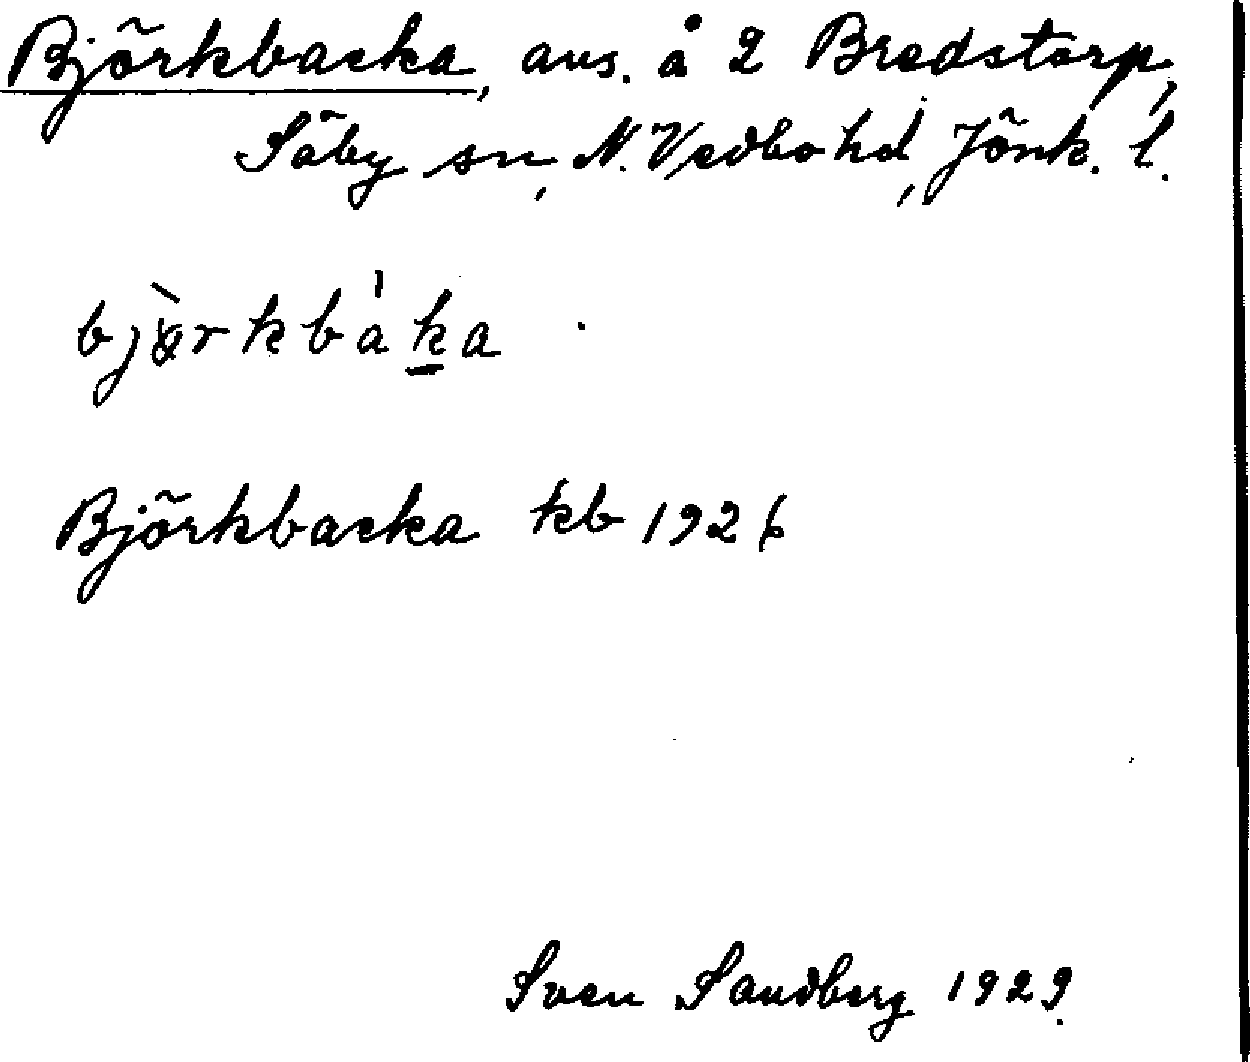 Björkbacka, avs. å 2 Bredstorp,
Säby sn, N. Vedbo hd, Jönk. l.
bjø̀rkbák̲a
Björkbacka kb 1926
Sven Sandberg 1929.